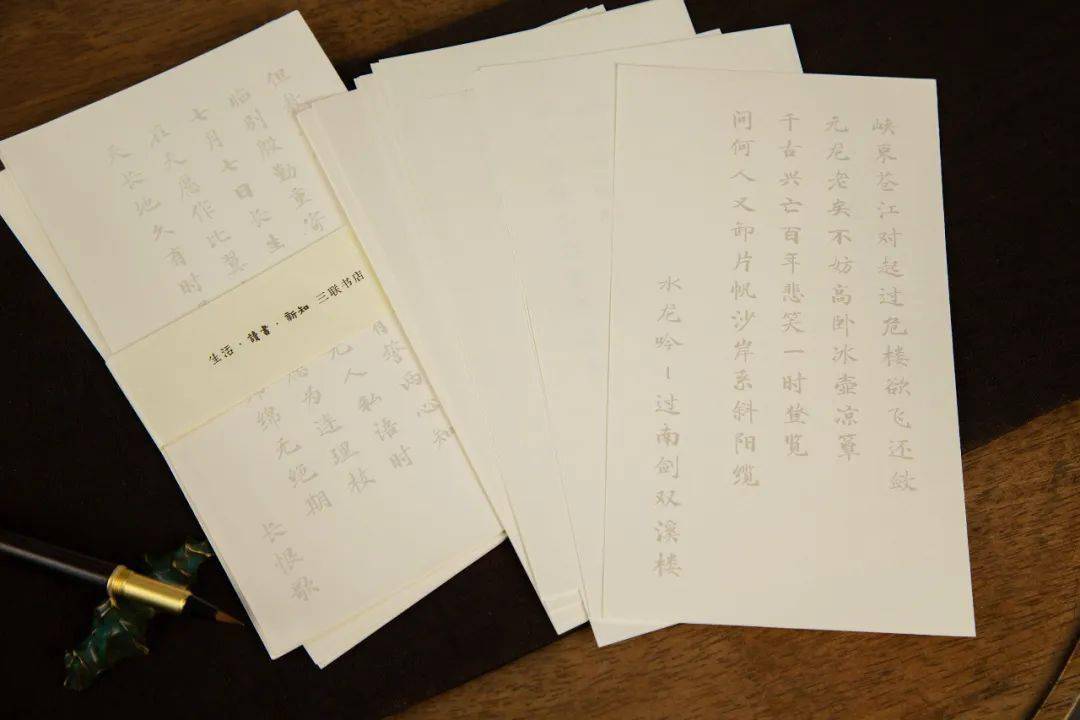 但
临别殷勤重寄
七月七日长生
在天愿作比翼
天长地久有时
生活·讀書·新知 三联书店
誓两心知
无人私语时
愿为连理枝
绵绵无绝期
长恨歌
峡束苍江对起过危楼欲飞还敛
元龙老矣不妨高卧冰壶凉簟
千古兴亡百年悲笑一时登览
问何人又卸片帆沙岸系斜阳缆
水龙吟－过南剑双溪楼